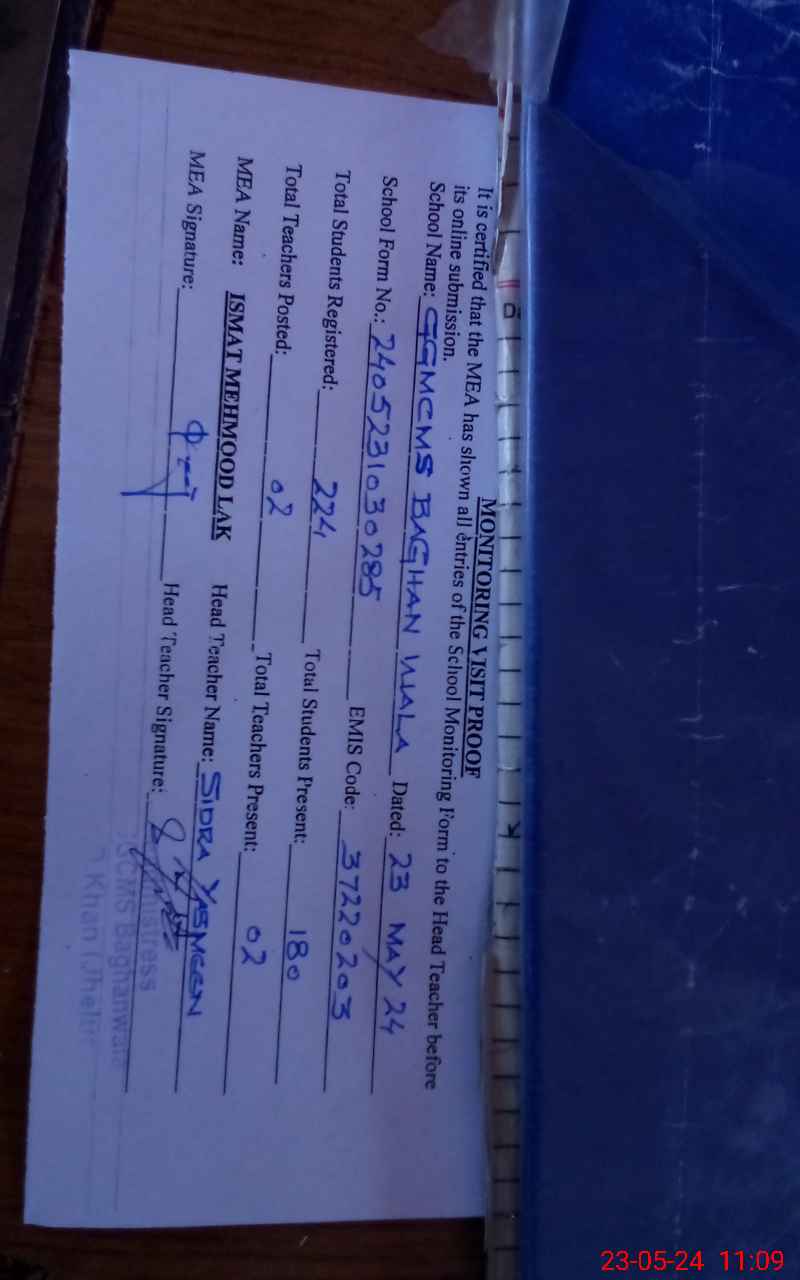 MONITORING VISIT PROOF
It is certified that the MEA has shown all entries of the School Monitoring Form to the Head Teacher before
its online submission.
School Name: GGMCMS BAGHAN WALA Dated: 23 MAY 24
School Form No.: 2405231030285 EMIS Code: 37220203
Total Students Registered: 224 Total Students Present: 180
Total Teachers Posted: 02 Total Teachers Present: 02
MEA Name: ISMAT MEHMOOD LAK Head Teacher Name: SIDRA YASMEEN
MEA Signature: Head Teacher Signature:
CMS Baghanwala
Khan (Jhelum
23-05-24 11:09